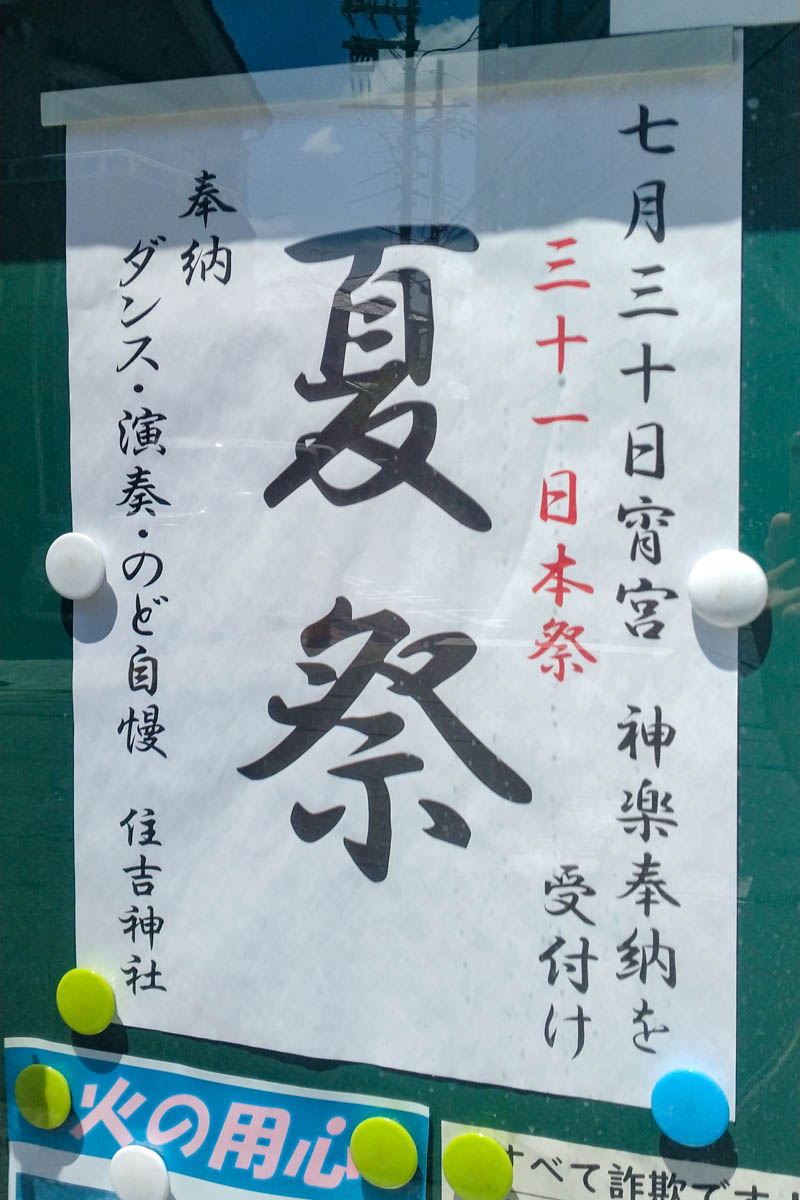 七月三十日宵宮　神楽奉納を
三十一日本祭　受付け
夏祭
奉納
ダンス・演奏・のど自慢　住吉神社
火の用心
すべて詐欺です